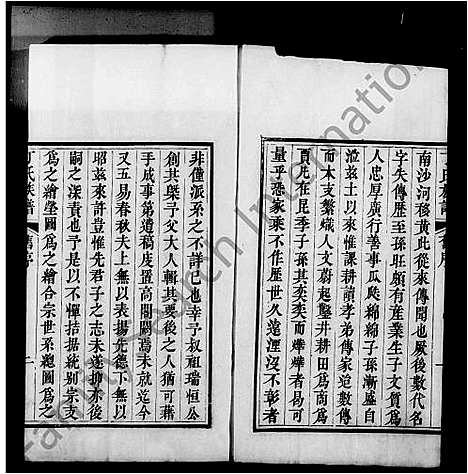 南沙河移黃此從來傳聞也厥後數代名
字失傳歷至孫旺頗有產業生子文質爲
人忠厚廣行善事瓜瓞綿綿子孫漸盛自
茲以來惟課耕讀孝弟傳家迨數傳
而木支繁熾人文蔚起鑿井耕田爲南爲
賈凡在昆季子孫其奕奕而燁燁者易可
量乎恐家乘不作歷世久遠湮沒不彰者
非僅派系之不詳已也幸予叔祖瑞恒公
創其槩予父大人輯其要後之人猶可藉
手成事第遺稿庋置高閣闕焉未就迄今
又五易春秋夫上無以表揚先德下無以
昭茲來許豈惟先君子之志未遂抑亦後
嗣之深責也予是以不憚拮据統別宗支
爲之繪塋圖爲之繪合宗世系總圖爲之
丁氏族譜
舊序
一
FamilySearch International